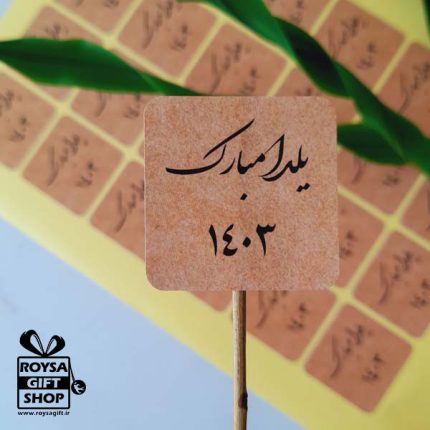 یلدا مبارک
۱۴۰۳
ROYSA
GIFT
SHOP
www.roysagift.ir